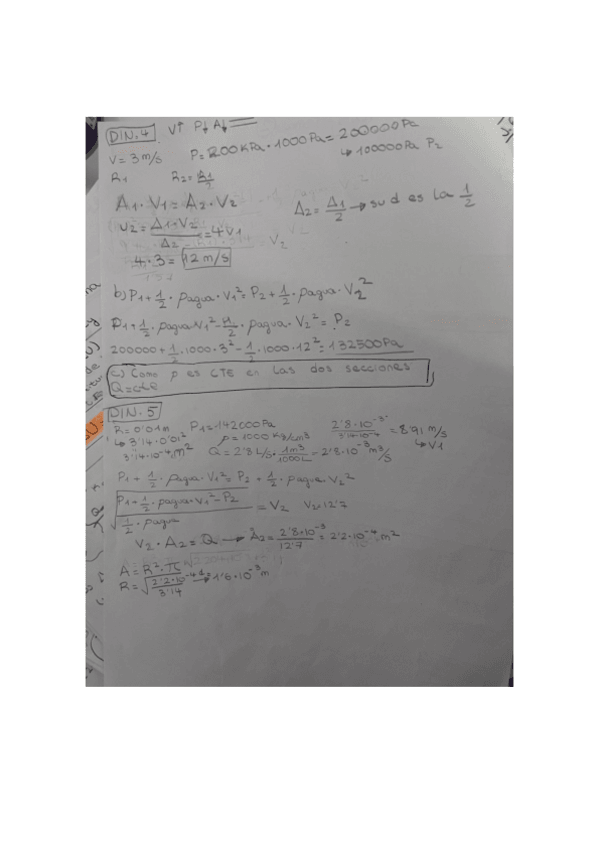 DIN.4 V↑ P↓ A↓
V = 3 m/s P = 200 KPa · 1000 Pa = 200000 Pa
↳ 100000 Pa P2
R1 R2 = R1/2
A1 · V1 = A2 · V2 A2 = A1/2 → su d es la 1/2
V2 = A1·V2/A2 = 4V1
4·3 = 12 m/s
b) P1 + 1/2 · pagua · V1² = P2 + 1/2 · pagua · V2²
P1 + 1/2 · pagua · V1² - 1/2 · pagua · V2² = P2
200000 + 1/2 · 1000 · 3² - 1/2 · 1000 · 12² = 132500 Pa
c) Como p es CTE en las dos secciones
Q = cte
DIN.5
R = 0'01 m P1 = 142000 Pa 2'8·10⁻³/3'14·10⁻⁴ = 8'91 m/s
↳ 3'14 · 0'01² p = 1000 Kg/m3 ↳ V1
3'14·10⁻⁴ m² Q = 2'8 L/s · 1m³/1000L = 2'8·10⁻³ m³/s
P1 + 1/2 · pagua · V1² = P2 + 1/2 · pagua V2²
√(P1 + 1/2 · pagua · V1² - P2 / 1/2 · pagua) = V2 V2 = 12'7
V2 · A2 = Q → A2 = 2'8·10⁻³/12'7 = 2'2·10⁻⁴ m²
A = R² · π
R = √(2'2·10⁻⁴/3'14) → 1'6·10⁻³ m